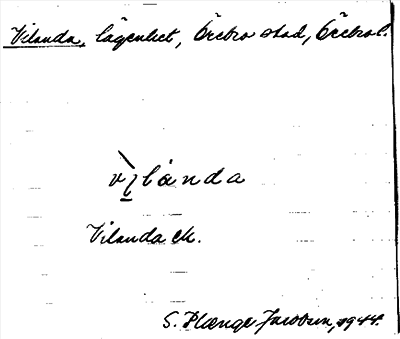 Vilanda, lägenhet, Örebro stad, Örebro l.
vi̠landa
Vilanda
S. Plænge Jacobson, 1944.